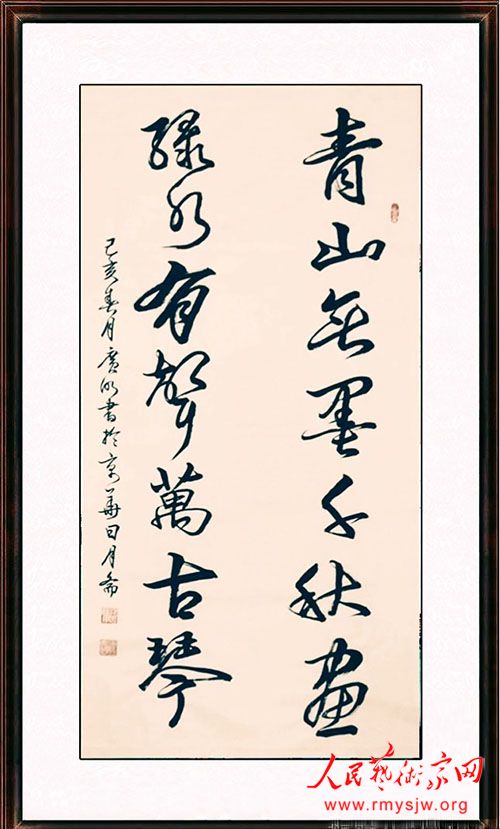 青山無墨千秋畫
綠水有聲萬古琴
己亥春月廣明書於京華日月齋
人民藝術家网
www.rmysjw.org